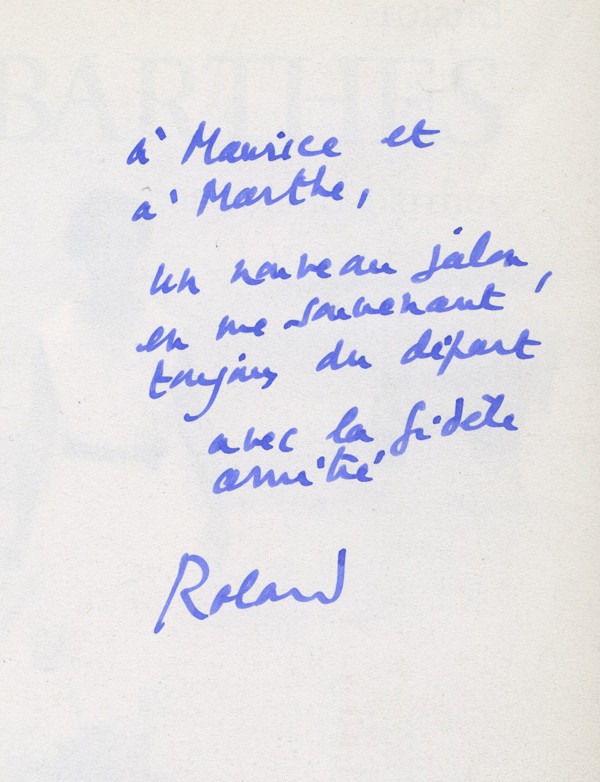 BARTHES
à Maurice et
à Marthe,
un nouveau jalon,
en me souvenant
toujours du départ
avec la fidèle
amitié
Roland